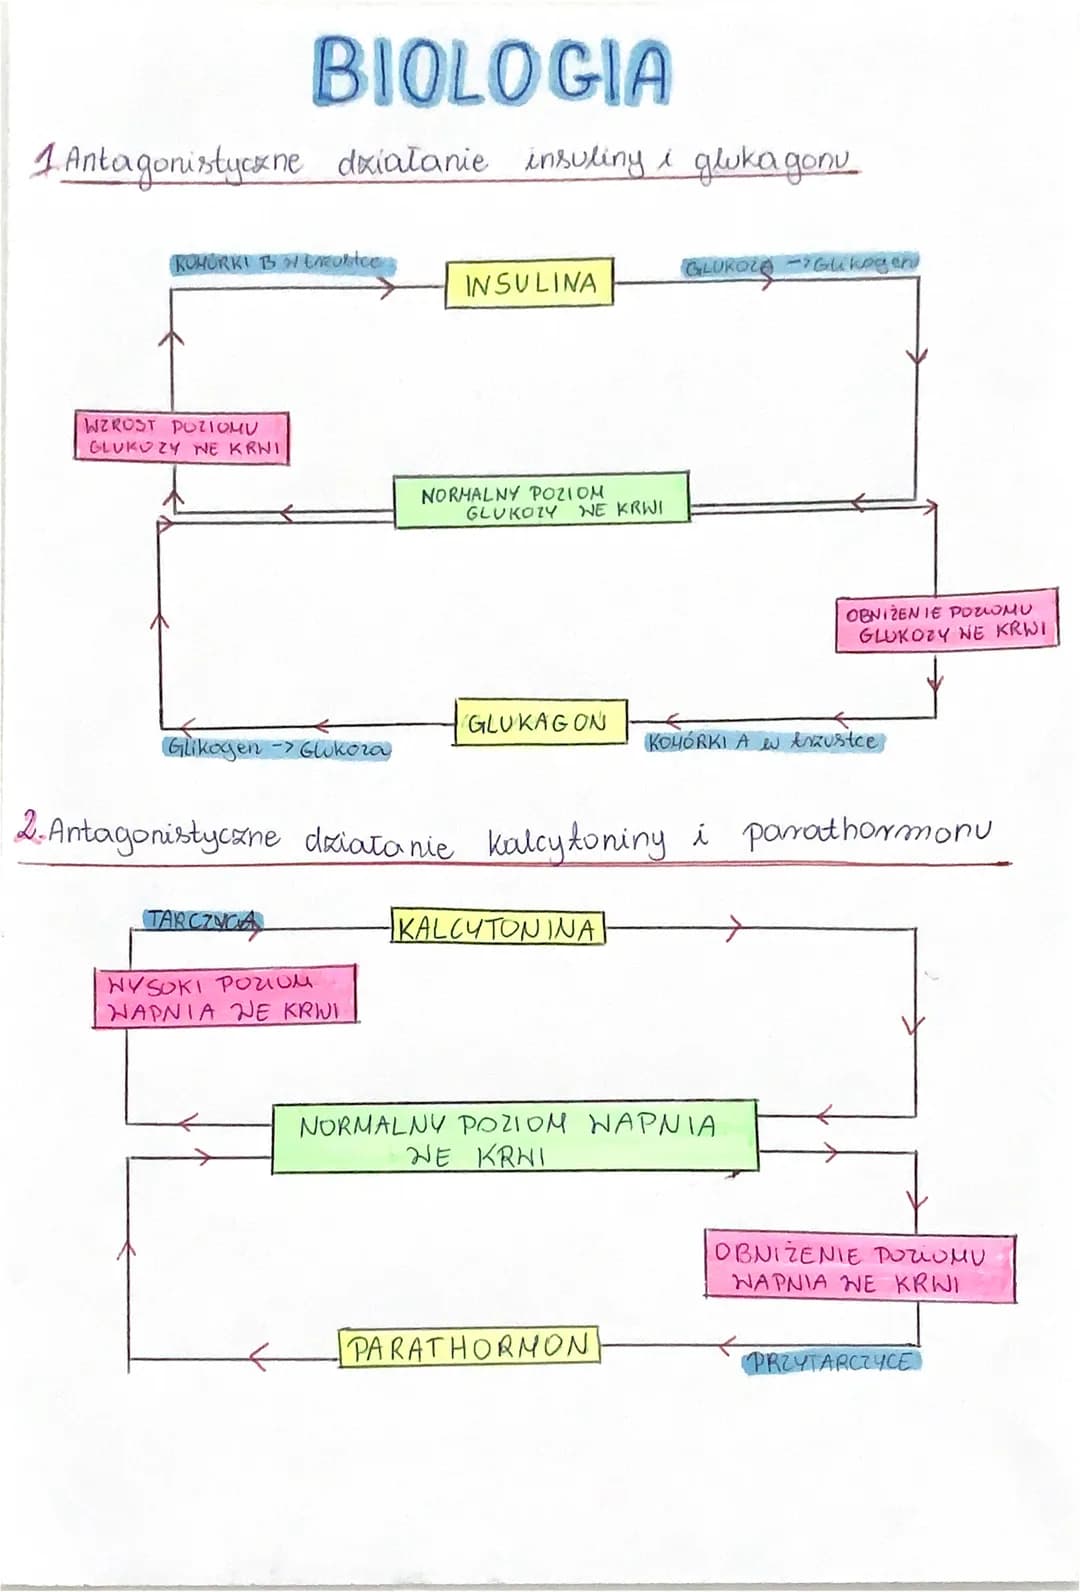 BIOLOGIA
1. Antagonistyczne działanie insuliny i glukagonu
KOMÓRKI B W trzustce
INSULINA
GLUKOZA -> Glikogen
WZROST POZIOMU
GLUKOZY WE KRWI
NORMALNY POZIOM
GLUKOZY WE KRWI
OBNIŻENIE POZIOMU
GLUKOZY WE KRWI
GLUKAGON
Glikogen -> Glukoza
KOMÓRKI A w trzustce
2. Antagonistyczne działanie kalcytoniny i parathormonu
TARCZYCA
KALCYTONINA
WYSOKI POZIOM
WAPNIA WE KRWI
NORMALNY POZIOM WAPNIA
WE KRWI
OBNIŻENIE POZIOMU
WAPNIA WE KRWI
PARATHORMON
PRZYTARCZYCE